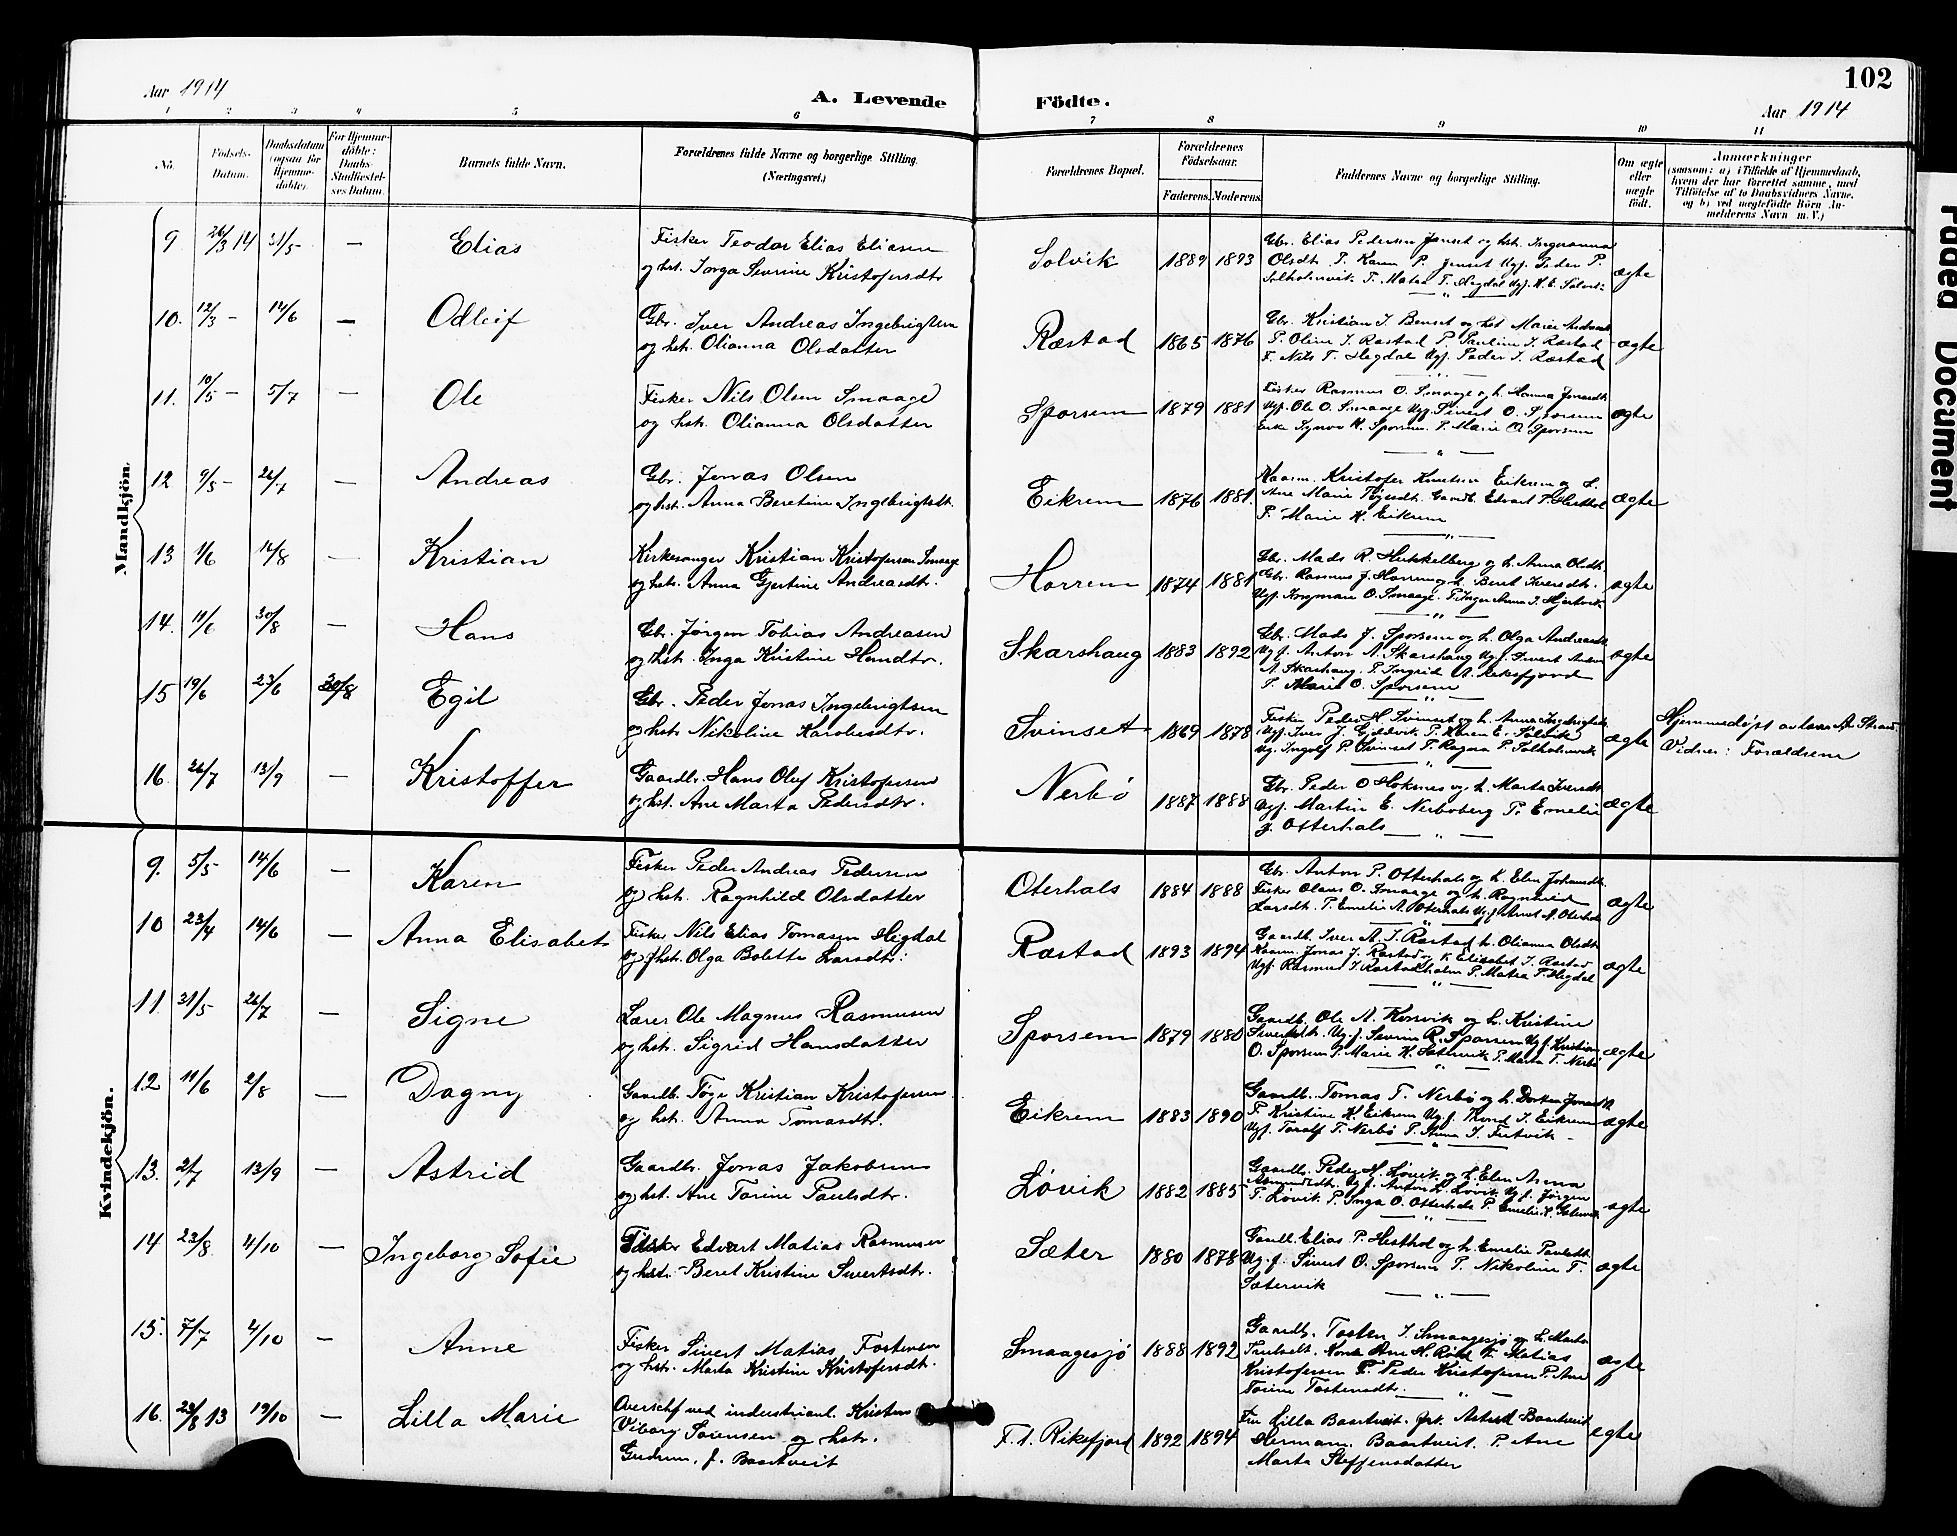 102
Aar 1914
A. Levende Födte.
Aar 1914
1 2 3 4 5 6 7 8 9 10 11
No.
Födsels-
Datum.
Daabsdatum
(ogsaa for
Hjemme-
döbte).
For Hjemme-
döbte:
Daabs-
Stadfæstel-
ses Datum.
Barnets fulde Navn.
Forældrenes fulde Navne og borgerlige Stilling.
(Næringsvei.)
Forældrenes Bopæl.
Forældrenes
Födselsaar.
Faderens. Moderens.
Faddernes Navne og borgerlige Stilling.
Om ægte
eller
uægte
födt.
Anmærkninger
(saasom: a) i Tilfælde af Hjemmedaab,
hvem der har forrettet samme, med
Tilföielse af to Daabsvidners Navne.
og b) ved uægtefödte Börn An-
melderens Navn m. V.)
Mandkjön.
9 26/3 14 31/5 — Elias
Fisker Teodor Elias Eliasen
og hst. Inga Severine Kristofersdtr
Solvik 1889 1893
Gbr. Elias Pedersen Jenset og hst. Ingeranna
Olsdt. P. Karen P. Jenset Ugf. Peder P.
Solholmvik P. Matea T. Hegdal Ugf. H. E. Solvik
ægte
10. 12/3 — 14/6 — Odleif
Gbr. Iver Andreas Ingebrigtsen
og hst. Olianna Olsdatter
Ræstad 1865 1876
Gbr. Kristian J. Benset og hst Marie
P. Oline I. Ræstad P. Pauline I. Ræstad
F. Nils T. Hegdal Ugf. Peder I. Ræstad
ægte
11. 10/5 — 5/7 — Ole
Fisker Nils Olsen Smaage
og hst. Olianna Olsdatter
Sporsem 1879 1881
Fisker Rasmus O. Smaage og h. Hanna
Ugf. Ole O. Smaage Ugf. Sivert O. Sporsem
Enke Synov K. Sporsem. P. Marie O. Sporsem
ægte
12. 9/5 — 26/7 — Andreas
Gbr. Jonas Olsen
og hst. Anna Beretine Ingebrigtsdt.
Eikrem 1876 1881.
Kaarm. Kristofer Knutsen Eikrem og h.
Ane Marie Gaardb. Edvart P. Hesthol
P. Marie K. Eikrem
ægte
13 1/6 14/8 — Kristian
Kirkesanger Kristian Kristofersen Smaage
og hst. Anna Gjertine Andreasdt.
Harrem 1874 1881
Gbr. Mads R. Hukkelberg og h. Anna Olsdt.
Gbr. Rasmus J. Harrem og h. Berit Iversdt.
Ugf. Ingmar O. Smaage. P. Inger Anna J. Hjertvik
ægte
14. 11/6 30/8 — Hans
Gbr. Jørgen Tobias Andreasen
og hst. Inga Kristine Hansdtr.
Skarshaug 1883 1892
Gbr. Mads J. Sporsem og h. Olga Andreasdt
Ugf. Anton A. Skarshaug Ugf. Sivert Anton
A. Skarshaug. P. Ingrid A. Rekefjord
P. Marie O. Sporsem
ægte
15 19/6 23/6 30/8 Egil
Gbr. Peder Jonas Ingebrigtsen
og hst. Nikoline
Svinset 1869 1878
Fisker Peder H. Svinset og h. Anna Ingebrigtsdt
Ugf. Iver J. P. Karen E. Solvik
Ug. Ingolf P. Svinset P. Ragna P. Solholmvik
ægte
Hjemmedøpt av lærer A. Strand
Vidner: Forældrene
16. 26/7 13/9 — Kristoffer
Gaardb. Hans Oluf Kristofersen
og hst. Ane Marta Pedersdtr.
Nerbø 1887 1888
Gbr. Peder O Hoksnes og h. Marta Iversdt.
Ugf. Martin E. Nerboberg P. Emelie
J. Otterhals
ægte
Kvindekjön.
9. 5/5 14/6 — Karen
Fisker Peder Andreas Pedersen
og hst. Ragnhild Olsdatter
Oterhals 1884 1888
Gbr. Anton P. Otterhals og h. Elen Johansdt.
Fisker Olaus O. Smaage og h. Ragnhild
Larsdt. P. Emelie A. Oterhals Ug.f. Arnt A. Oterhals
ægte
10 23/4 14/6 — Anna Elisabet
Fisker Nils Elias Tomasen Hegdal
og hst. Olga Bolette Larsdtr.
Ræstad 1893 1894
Gaardb. Iver A. I. Ræstad h. Olianna Olsdt.
Kaarm. Jonas J. Ræstad og h. Elisabet I. Ræstad
Ugf. Rasmus I. Ræstadholm P. Matea T. Hegdal
ægte
11 31/5 26/7 — Signe
Lærer Ole Magnus Rasmusen
og hst. Sigrid Hansdatter
Sporsem 1879 1880
Gaardb. Ole A. Korsvik og h. Kristine
Sivertsdt. Ug.f. Severin R. Sporsem Ug.f. Kristian
O. Sporsem P. Marie H. Sætervik P. Marta T. Nerbø
ægte
12 11/6 2/8 — Dagny
Gaardb. Tøge Kristian Kristofersen
og hst. Anna Tomasdtr.
Eikrem 1883 1890
Gaardb. Tomas T. Nerbø og h. Dortea
P. Kristine K. Eikrem Ug.f. Trond I. Eikrem
Ugf. Toralf T. Nerbø P. Anna J.
ægte
13. 2/7 13/9 — Astrid
Gaardbr. Jonas Jakobsen
og hst. Ane Torine Paulsdtr.
Løvik 1882 1885
Gaardb. Peder H. Løvik og h. Elen Anna
Asmundsdtr. Ug.f. Anton L. Løvik Ug.f. Jørgen
T. Løvik P. Inga O. Otterhals P. Emelie H.
ægte
14 23/8 4/10 — Ingeborg Sofie
Fisker Edvart Matias Rasmusen
og hst. Beret Kristine Sivertsdtr.
Sæter 1880 1878
Gaardb. Elias P. Hesthol og h. Emelie Paulsdt.
Ug.f. Sivert O. Sporsem P. Nikoline T.
Sætervik
ægte
15. 7/7 4/10 — Anne
Fisker Sivert Matias Tostensen
og hst. Marta Kristine Kristofersdt.
Smaagesjø 1888 1892
Gaardb. Tosten J. Smaagesjø og h. Marta
Kone Ane H. F. Matias
Kristofersen F. Peder Kristofersen P. Ane
Torine Tostensdtr.
ægte
16. 23/8 13 19/10 — Lilla Marie
ved Kristens
Viborg Sørensen og hst.
Gudrun, f. Baartveit
F. t. Rikefjord 1892 1894
Fru Lilla Baartveit. Frk. Astrid Baartveit
Herman. Baartveit. P. Ane
Marta Steffensdatter
ægte
Faded Document